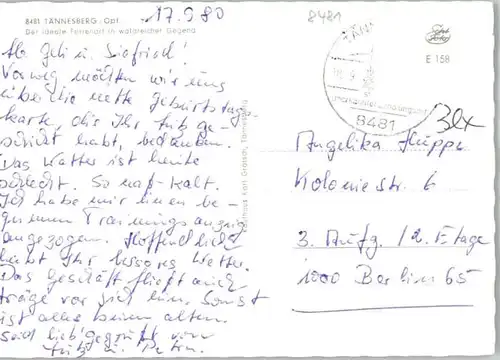 8481 TÄNNESBERG / Opf.
Der ideale Ferienort in waldreicher Gegend
17.9.80
8481
E 158
8481
Siegfried!
Vorweg möchten wir uns
über die nette Geburtstags-
karte die Ihr Fritz ge-
schickt habt, bedanken.
Das Wetter ist heute
schlecht. So naß-kalt.
Ich habe mir einen be-
quemen Trainingsanzug
angezogen. Hoffentlich
habt Ihr besseres Wetter.
Das Geschäft fließt auch
träge vor sich hin. Sonst
ist alles beim alten.
Seid lieb gegrüßt von
Fritz u.
Angelika Huppe
Koloniestr. 6
3. Aufg. / 2. Etage
1000 Berlin 65